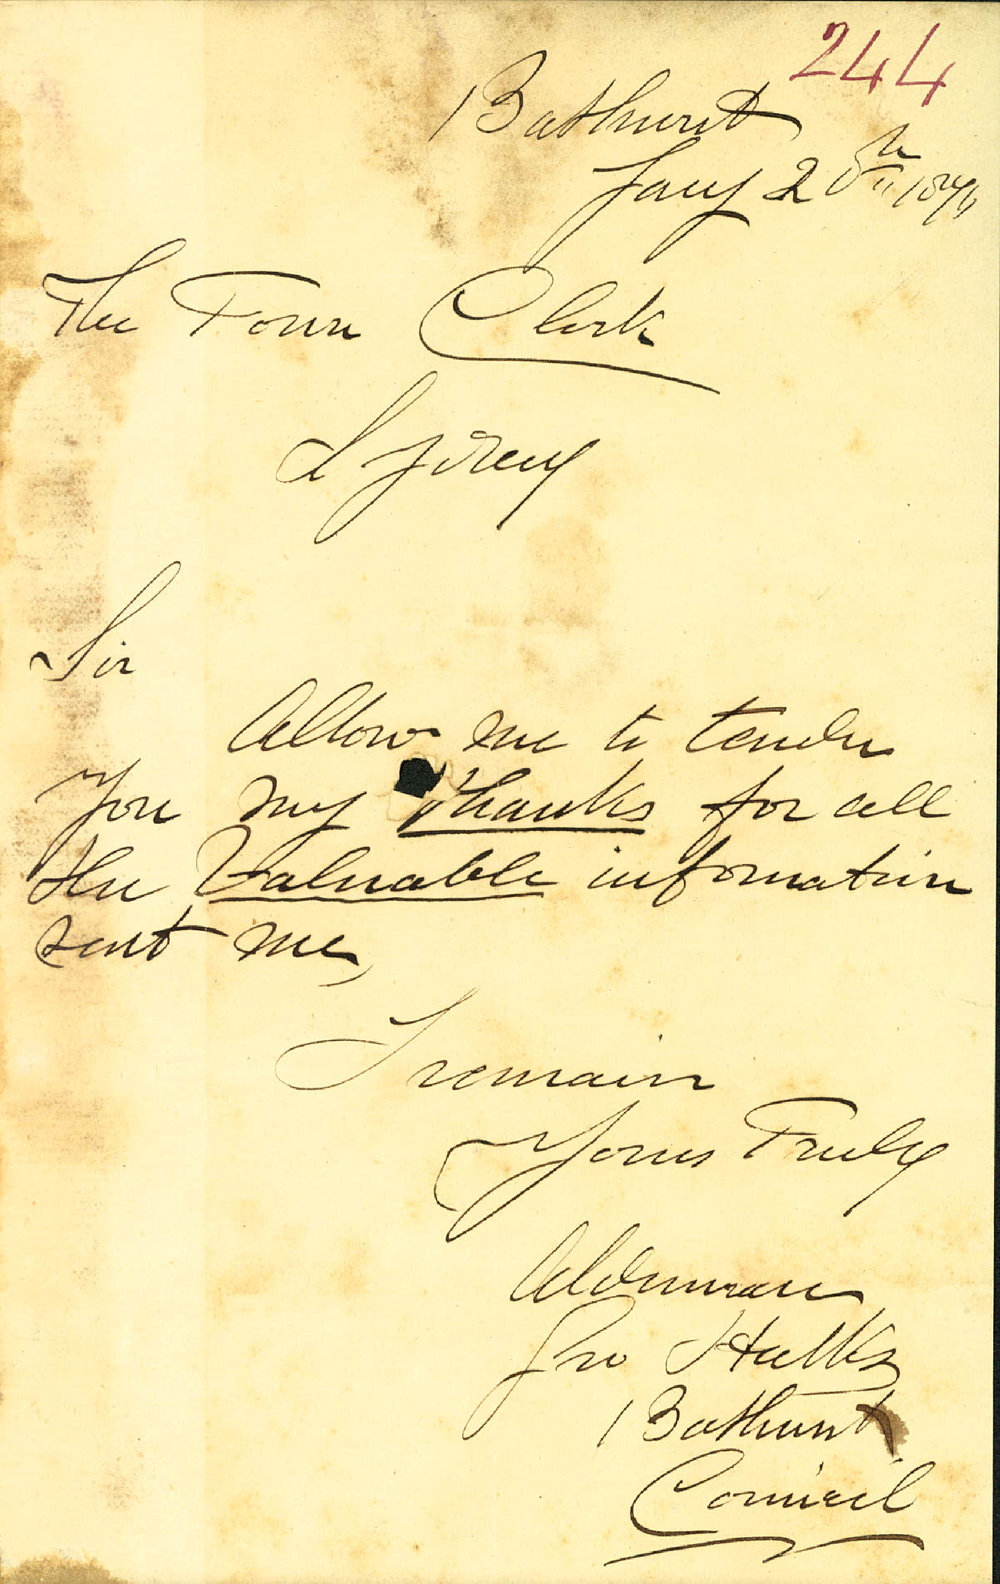 244
Bathurst
Jany 20th
The Town Clerk
Sydney
Sir
Allow me to tender
You my thanks for all
the Valuable information
sent me,
I remain
Yours Truly
Alderman
Jno Hulks
Bathurst
Council